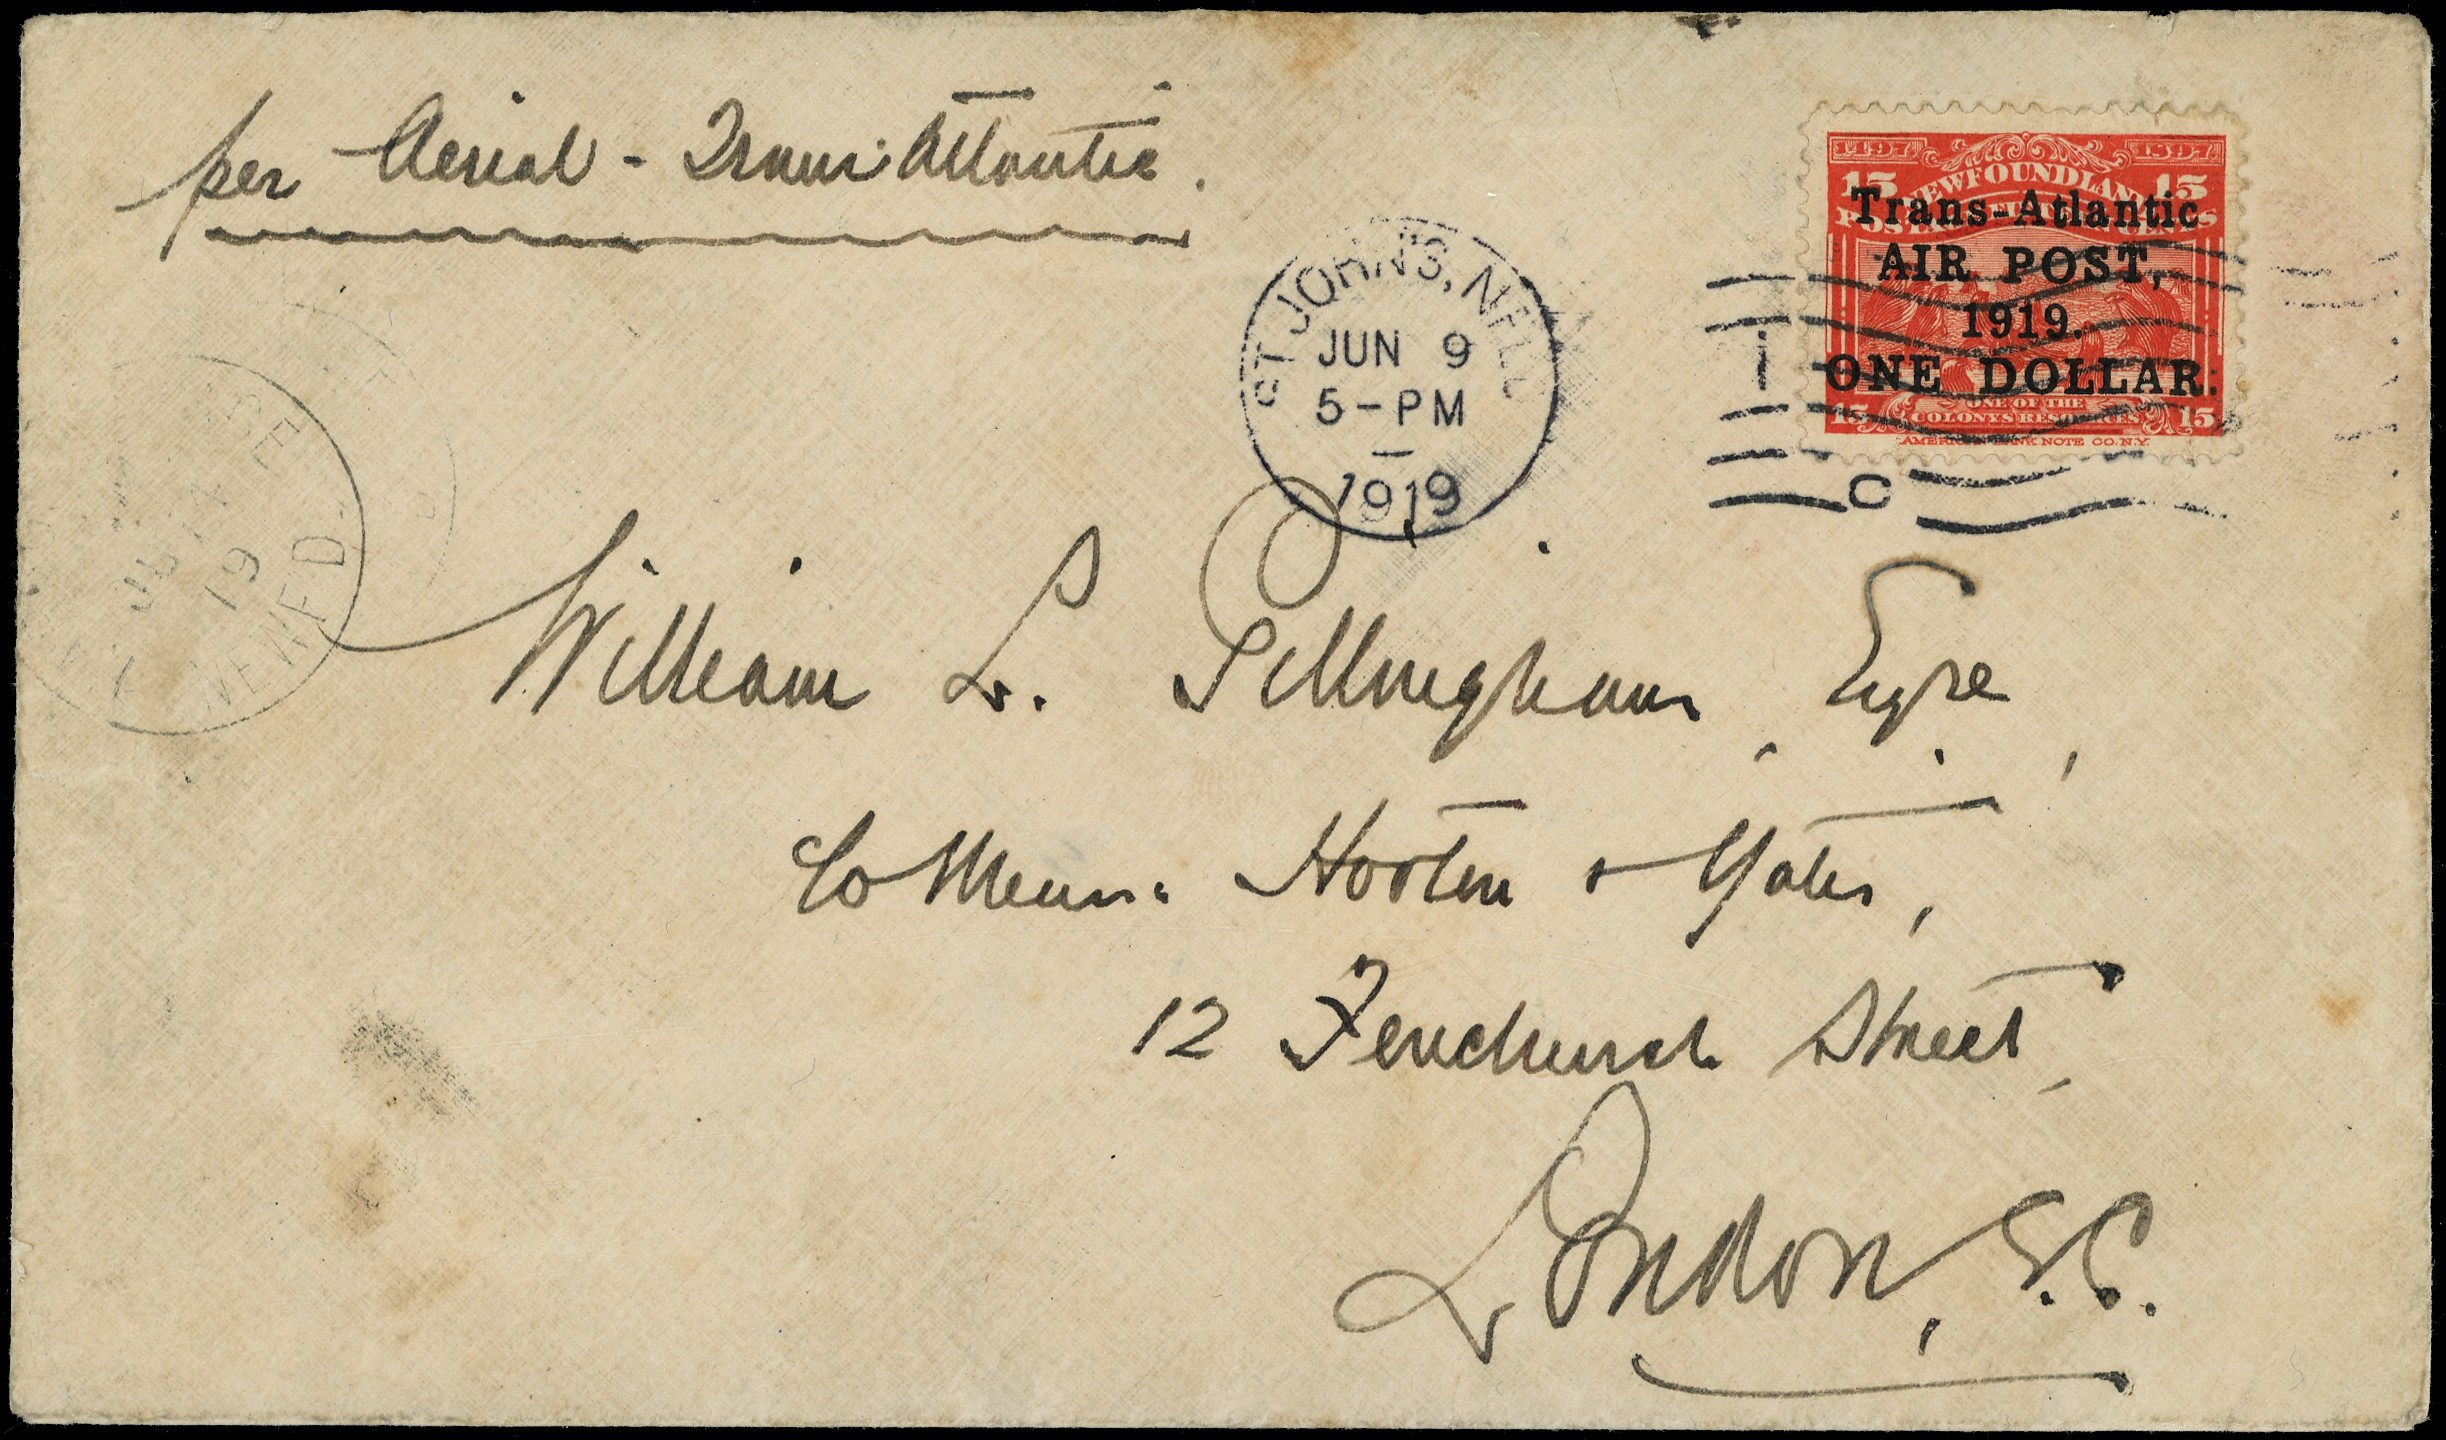 per Aerial - Trans Atlantic.
1497 1897
15 NEWFOUNDLAND 15
Trans-Atlantic
AIR POST,
1919.
ONE DOLLAR.
15 ONE OF THE 15
COLONYS RESOURCES
AMERICAN BANK NOTE CO. N.Y.
ST JOHN'S, NFLD
JUN 9
5-PM
1919
C
19
William L. Gillingham, Esqre,
c/o Messrs. Hooten & Yates,
12 Fenchurch Street,
London, E.C.